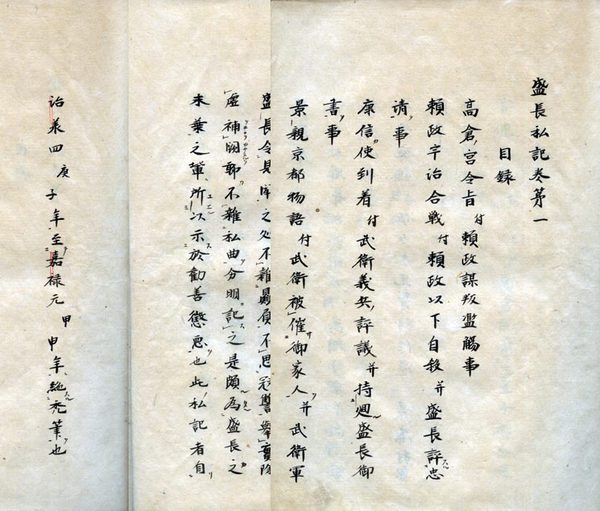 盛長私記巻第一
目録
高倉宮令旨 付 頼政謀叛濫觴事
頼政宇治合戦 付 頼政以下自殺 并 盛長評忠
請事
康信使到着 付 武衛義兵評議 并 持廻盛長御
書事
景親京都物語 付 武衛被催御家人 并 武衛軍
盛長令見聞之処不雜
虚補闕聊不雜私曲分明記之是頗為盛長之
末葉之輩所以示於勧善懲悪也此私記者自
治承四庚子年至嘉禄元甲申年絶禿筆也